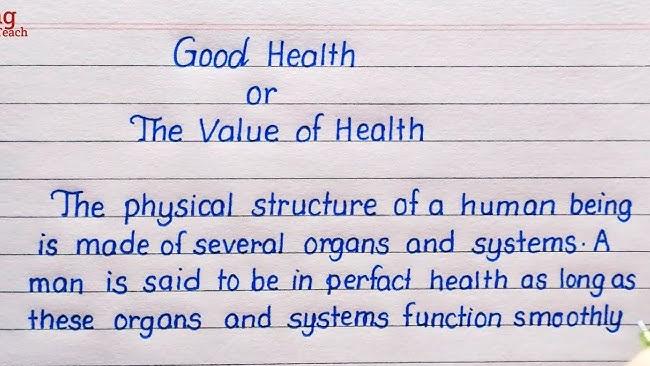 ng
Teach
Good Health
or
The Value of Health
The physical structure of a human being
is made of several organs and systems. A
man is said to be in perfact health as long as
these organs and systems function smoothly